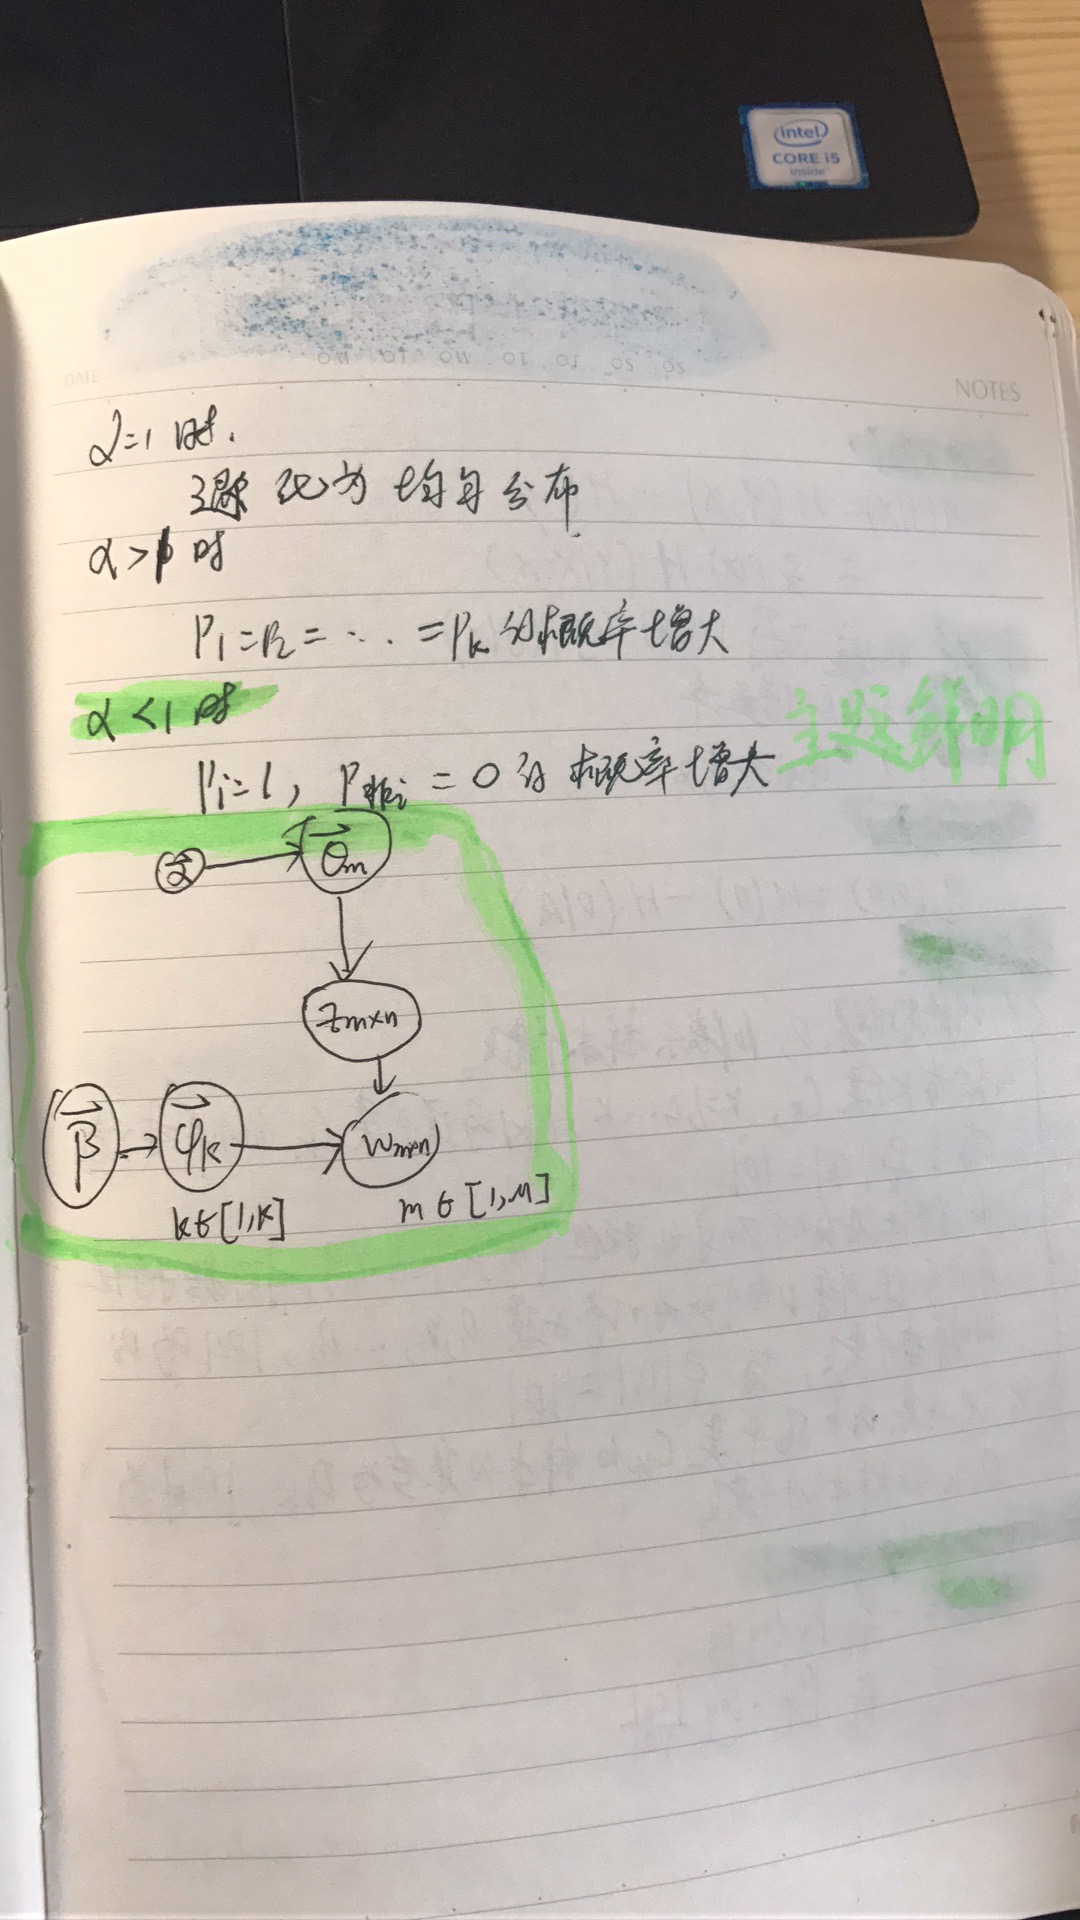 intel
CORE i5
inside
DATE
NOTES
α=1时.
退化为均匀分布
α>1时
P₁=P₂=...=Pₖ的概率增大
α<1时
主题鲜明
Pᵢ=1, P非ᵢ=0的概率增大
α⃗ θ⃗m
Zm×n
β⃗ φ⃗k Wm×n
k∈[1,K] m∈[1,M]